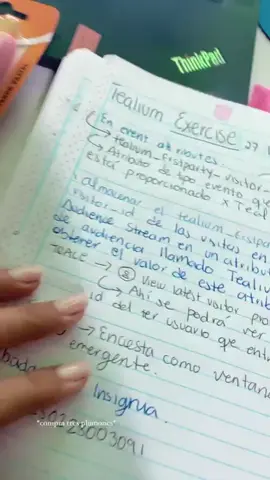 ThinkPad
Tealium Exercise 27
En event atributes.
tealium_firstparty_visitor
Atributo de tipo evento que
está proporcionado x Teal
almacenar el tealium_firstpar
visitor_id de las visitas en
Audience stream en un atribut
de audiencia llamado Tealiu
obtener el valor de este atrib
TRACE → 8 View latest visitor pro
Ahí se podrá ver
id del 1er usuario que ent
→ Encuesta como ventan
emergente.
bada
Insignia.
30323003091